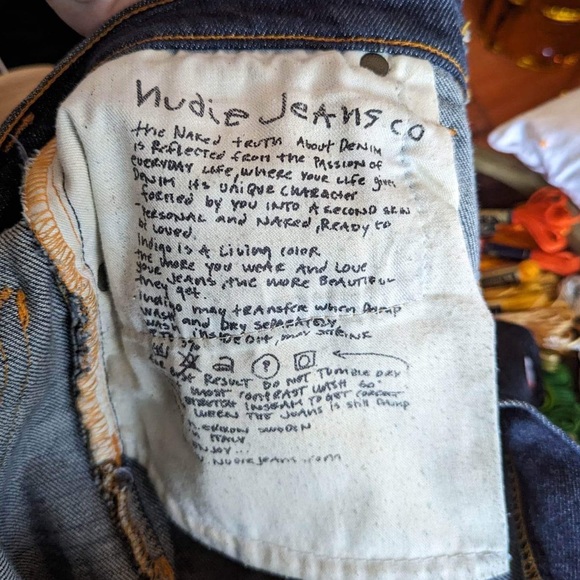 Nudie Jeans co
the Naked truth About Denim
is Reflected from the Passion of
everyday life, where your life gives
Denim its unique character
formed by you into a second skin
Personal and Naked, Ready to
be loved.
Indigo is a Living color
the more you wear and love
your Jeans, the more Beautiful
they get.
Indigo may transfer when Damp
wash and Dry separately
wash inside out, may shrink
Best Result Do not tumble dry
most contrast wash 60°
stretch inseam to get correct
when the Jeans is still Damp
Italy
Nudiejeans.com